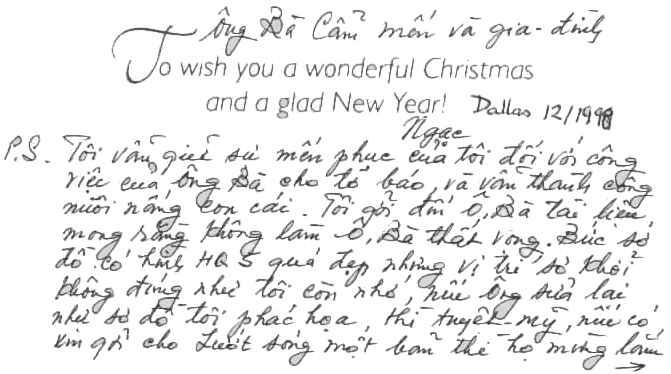 Ông Bà Cẩm mến và gia-đình
To wish you a wonderful Christmas
and a glad New Year! Dallas 12/1998
Ngạc
P.S. Tôi vẫn giữ sự mến phục của tôi đối với công
việc của Ông Bà cho tờ báo, và vấn thành công
nuôi nấng con cái. Tôi gởi đến Ô, Bà tài liệu
mong rằng không làm Ô, Bà thất vọng. Bức sơ
đồ có hình HQ 5 quá đẹp nhưng vị trí sơ khởi
không đúng như tôi còn nhớ, nếu Ông sửa lại
như sơ đồ tôi phác họa, thì tuyệt-mỹ, nếu có,
xin gởi cho Lướt Sóng một bản thì họ mừng lắm
→